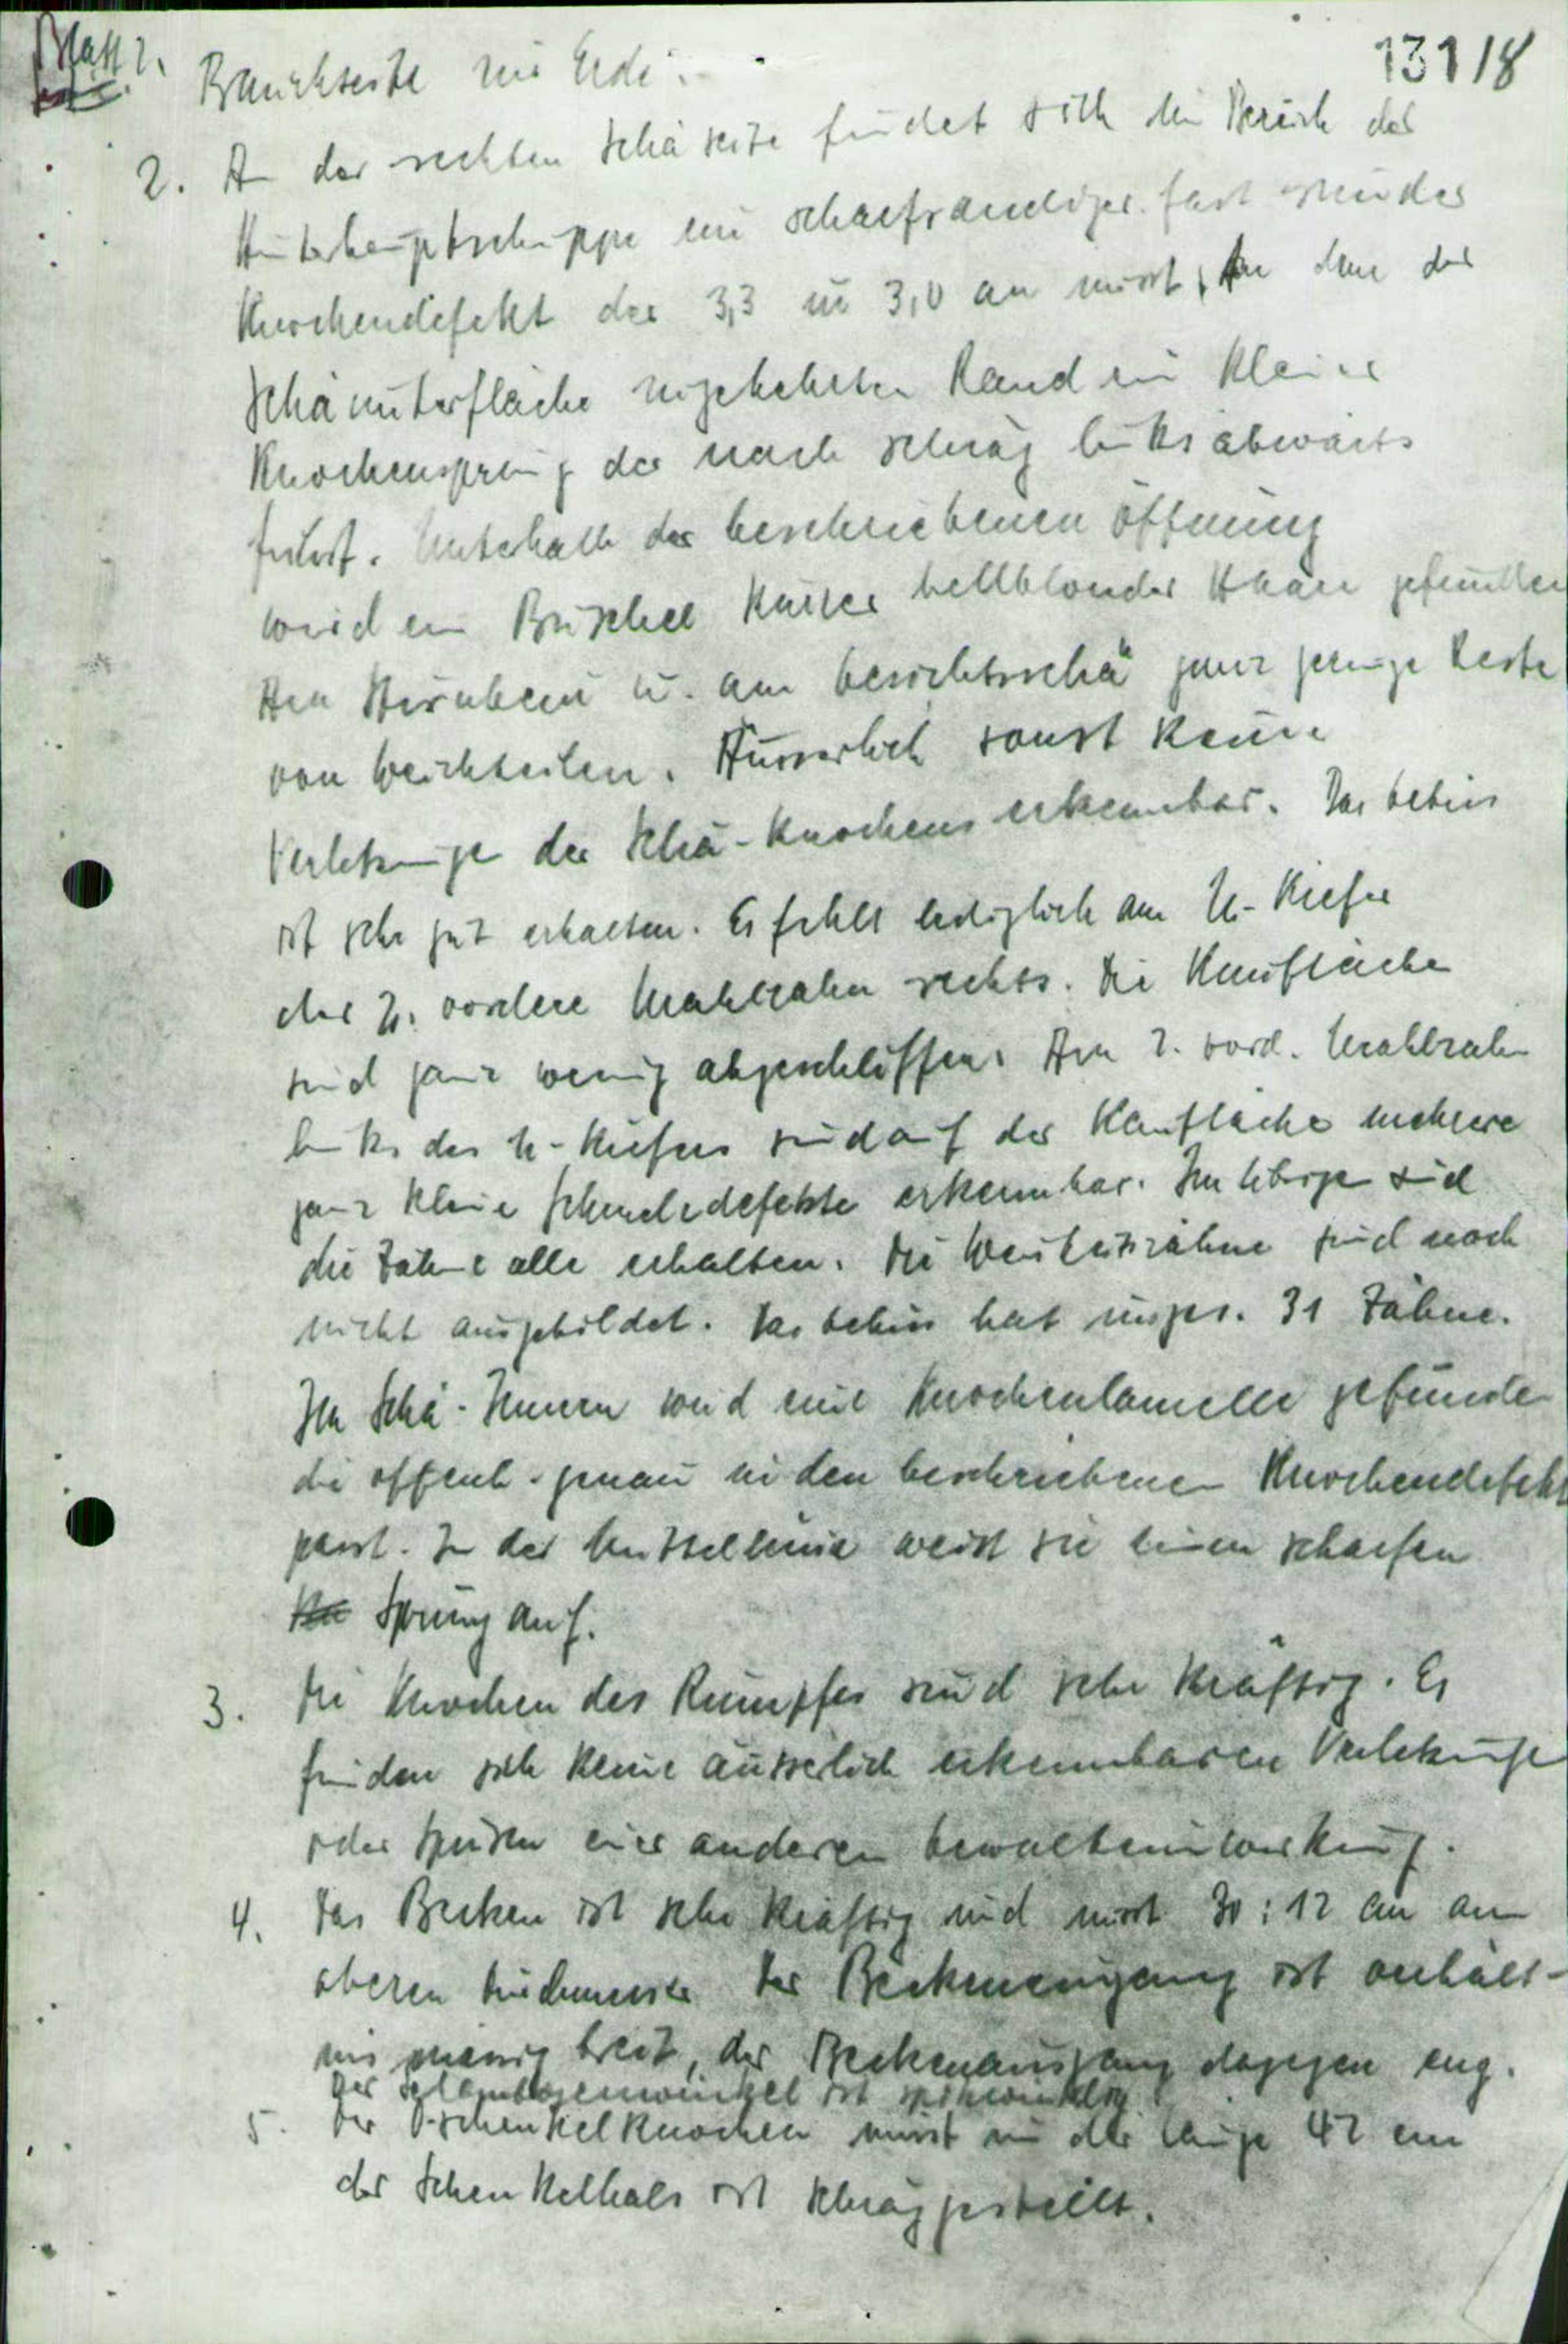 Blatt 2.
131/8
Bauchseite zur Erde.
2. An der rechten Schä seite findet sich im Bereich der
Hinterhauptschuppe ein scharfrandiger fast runder
Knochendefekt der 3,3 zu 3,0 cm misst, An dem der
Schä unterfläche zugekehrten Rand ein kleiner
Knochensprung der nach schräg links abwärts
führt. Unterhalb der beschriebenen Öffnung
wird ein Büschel kurzer hellblonder Haare gefunden
Am Stirnbein u. am Gesichtsschä ganz geringe Reste
von Weichteilen. Äusserlich sonst keine
Verletzungen des Schä-Knochens erkennbar. Das Gebiss
ist sehr gut erhalten. Es fehlt lediglich am U-Kiefer
der 2. vordere Mahlzahn rechts. Die Kaufläche
sind ganz wenig abgeschliffen. Am 2. vord. Mahlzahn
links des U-Kiefers sind auf der Kaufläche mehrere
ganz kleine Schmelzdefekte erkennbar. Im übrigen sind
die Zähne alle erhalten. Die Weisheitszähne sind noch
nicht ausgebildet. Das Gebiss hat insges. 31 Zähne.
Im Schä-Innern wird eine Knochenlamelle gefunden
die offenb. genau in den beschriebenen Knochendefekt
passt. In der Mittellinie weist sie einen scharfen
Sprung auf.
3. Die Knochen des Rumpfes sind sehr kräftig. Es
finden sich keine äusserlich erkennbaren Verletzungen
oder Spuren einer anderen Gewalteinwirkung.
4. Das Becken ist sehr kräftig und misst 30:12 cm am
oberen Durchmesser Der Beckeneingang ist verhält-
nis mässig breit, der Beckenausgang dagegen eng.
Der Schambogenwinkel ist spitzwinklig
5. Der O-schenkelknochen misst in der Länge 47 cm
der Schenkelhals ist schräggestellt.